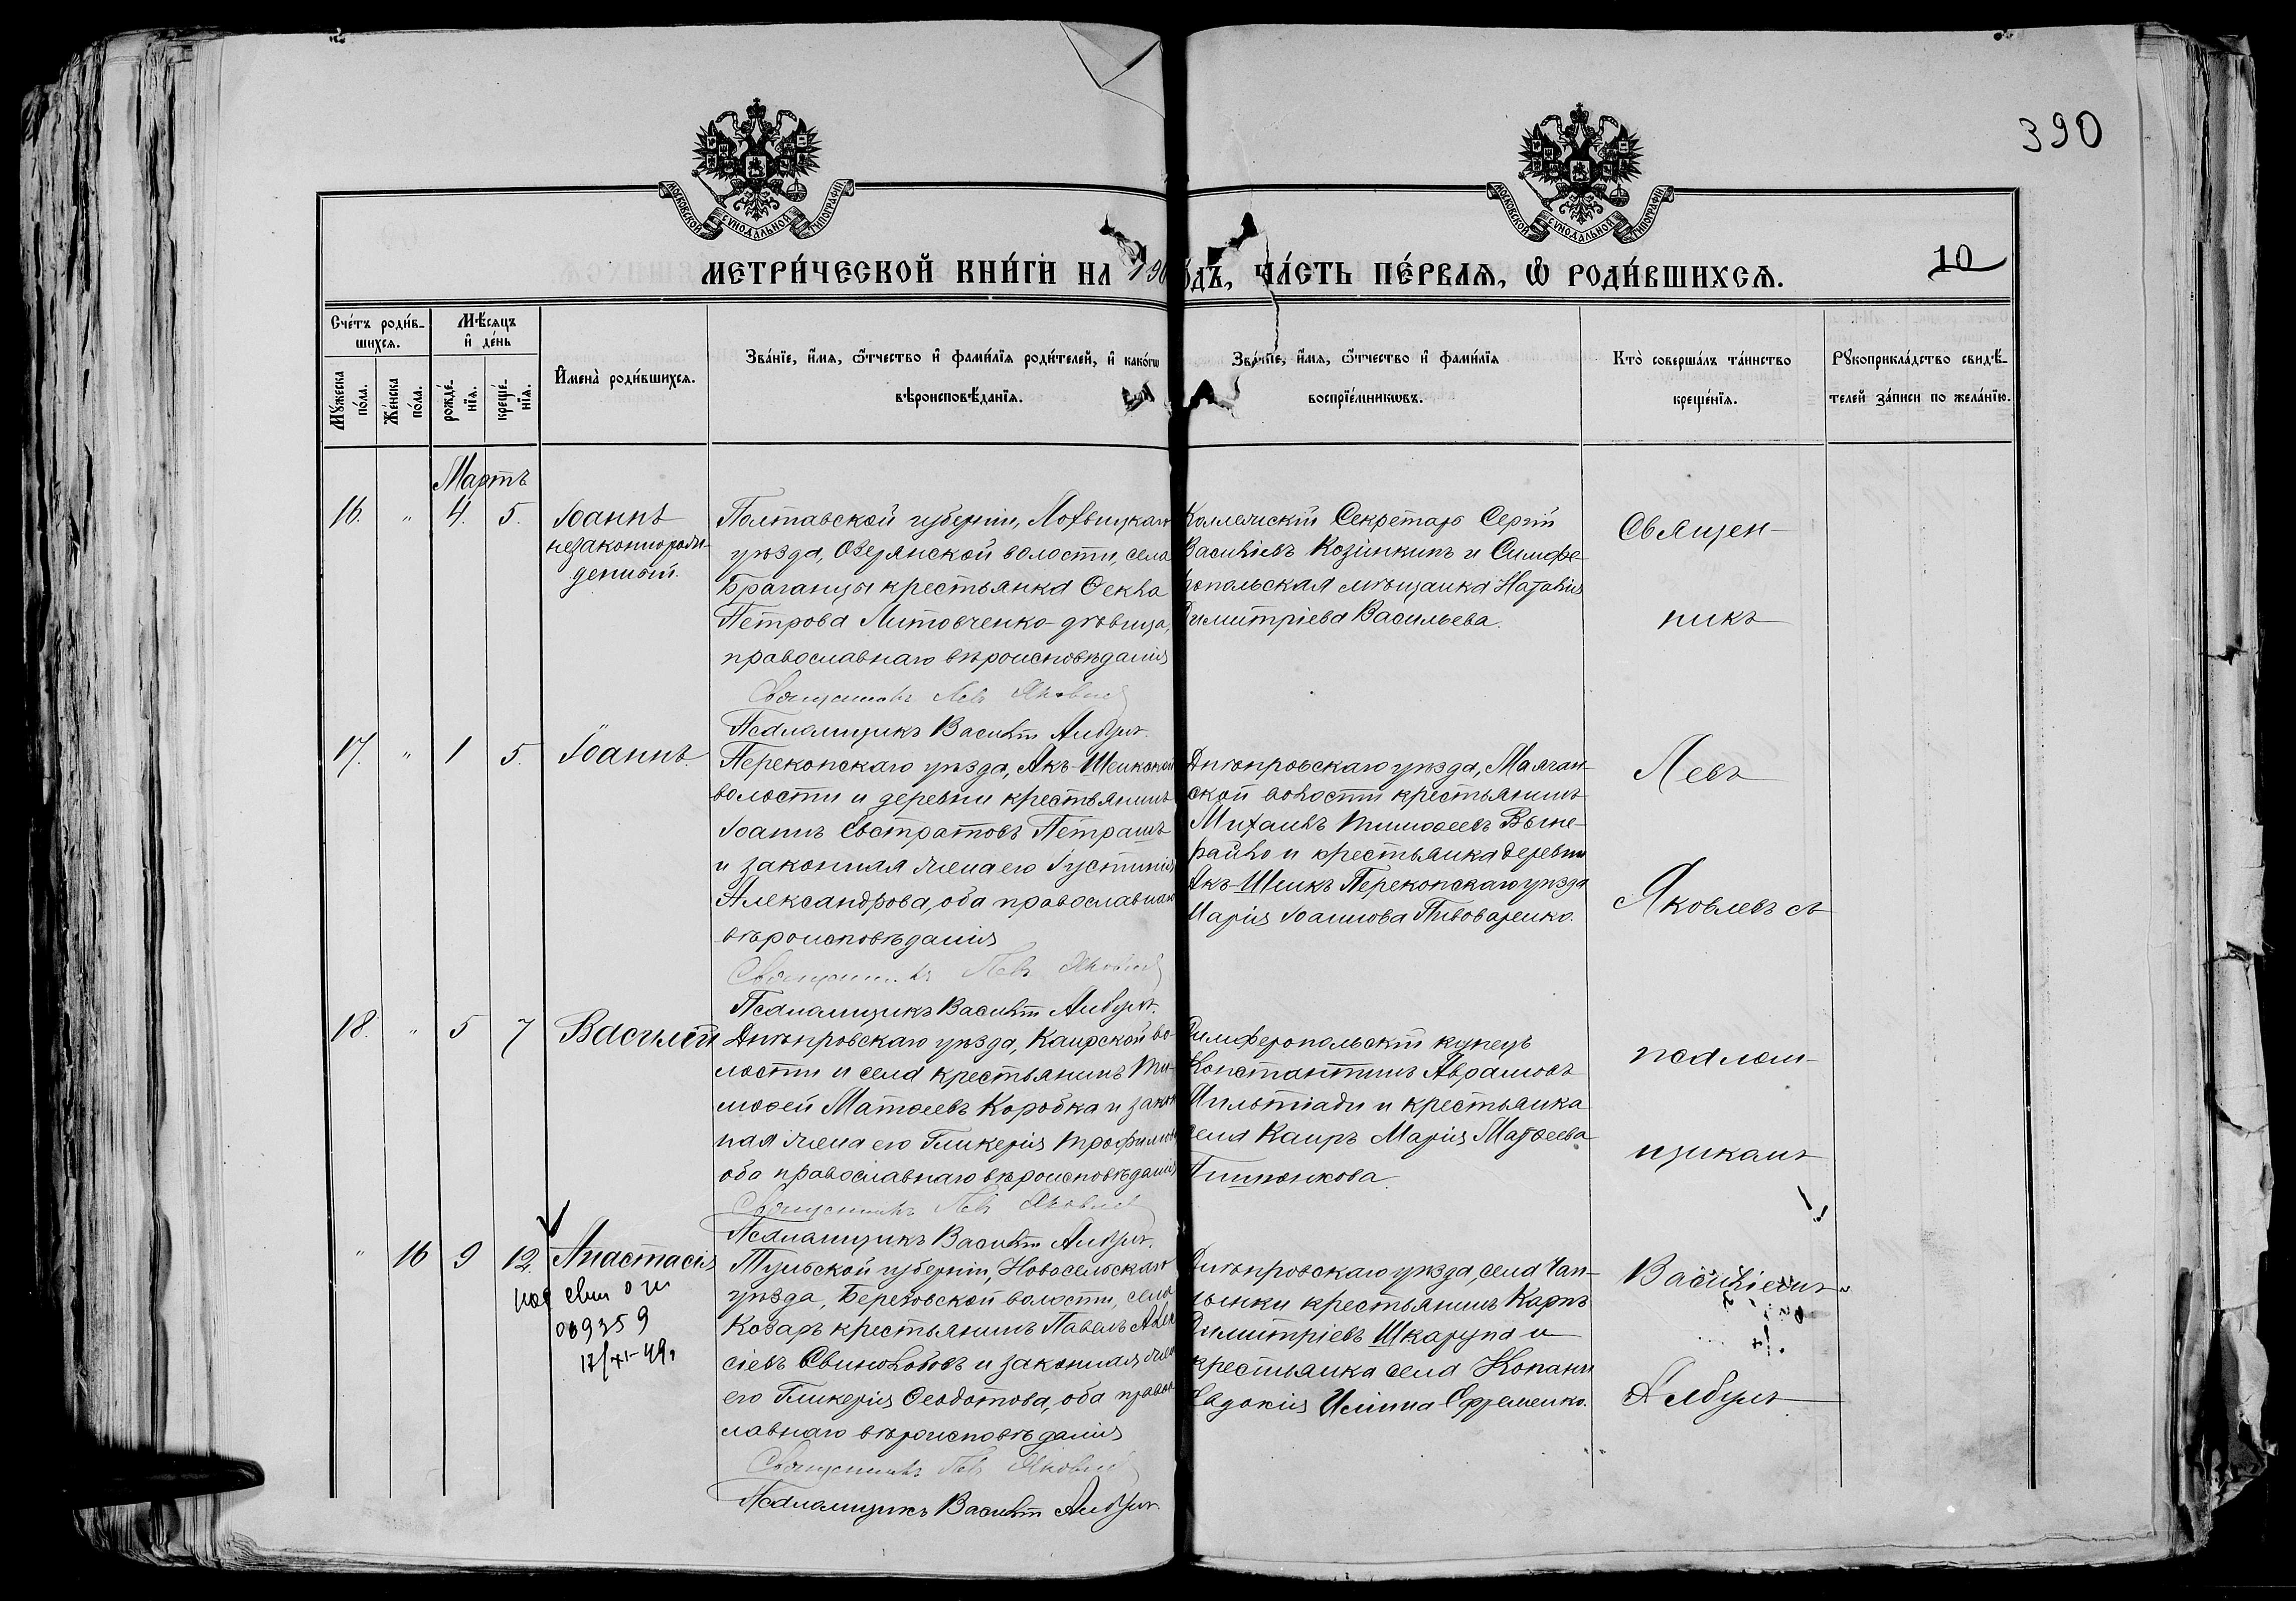 390
МОСКОВСКОЙ СУНОДАЛЬНОЙ ТИПОГРАФІИ
МОСКОВСКОЙ СУНОДАЛЬНОЙ ТИПОГРАФІИ
МЕТРИ́ЧЕСКОЙ КНИ́ГИ НА 190 ЧА́СТЬ ПЕ́РВАѦ, Ѡ РОДИ́ВШИХСѦ.
10
Сче́тъ роди́в-
шихсѧ.
Мѣ́сѧцъ
и҆ де́нь
Мꙋ́жеска по́ла.
Же́нска по́ла.
рожде́-
нїѧ.
креще́-
нїѧ.
И҆мена̀ роди́вшихсѧ.
Зва́нїе, и҆́мѧ, ѻ҆́тчество и҆ фами́лїѧ роди́телей, и҆ како́гѡ
вѣроисповѣ́данїѧ.
Зва́нїе, и҆́мѧ, ѻ҆́тчество и҆ фами́лїѧ
воспрїе́мникѡвъ.
Кто̀ соверша́лъ та́инство
креще́нїѧ.
Рꙋкоприкла́дство свидѣ́-
телей за́писи по жела́нїю.
Мартъ
16. " 4. 5.
Іоаннъ
незаконнорож-
денный.
Полтавской губерніи, Лохвицкаго
уѣзда, Озерянской волости, села
Браганцы крестьянка Ѳекла
Петрова Литовченко-дѣвица,
православнаго вѣроисповѣданія
Священникъ Левъ Яковлевъ
Псаломщикъ Василій Албулъ.
Коллежскій Секретарь Сергій
Василіевъ Козинкинъ и Симфе-
ропольская мѣщанка Наталія
Димитріева Васильева.
17. " 1 5.
Іоаннъ.
Перекопскаго уѣзда, Акъ-Шеикской
волости и деревни крестьянинъ
Іоаннъ Евстратовъ Петрашъ
и законная жена его Іустинія
Александрова, оба православнаго
вѣроисповѣданія
Священникъ Левъ Яковлевъ
Псаломщикъ Василій Албулъ.
Днѣпровскаго уѣзда, Маячан-
ской волости крестьянинъ
Михаилъ Тимоѳеевъ
и крестьянка деревни
Акъ-Шеихъ Перекопскаго уѣзда
Марія Іоаннова Пивоваренко.
18. " 5 7
Василій
Днѣпровскаго уѣзда, Каирской во-
лости и села крестьянинъ Ти-
моѳей Матѳеевъ Коробка и закон-
ная жена его Гликерія Трофимова
оба православнаго вѣроисповѣданія
Священникъ Левъ Яковлевъ
Псаломщикъ Василій Албулъ.
Симферопольскій купецъ
Константинъ Аврамовъ
Мильтіади и крестьянка
села Каиръ Марія Матѳеева
" 16 9 12.
Анастасія
009259
17/XI-49г
Тульской губерніи, Новосельскаго
уѣзда, Березовской волости, села
Козарь крестьянинъ Павелъ Алек-
сіевъ Свинолобовъ и законная жена
его Гликерія Ѳеодотова, оба право-
славнаго вѣроисповѣданія
Священникъ Левъ Яковлевъ
Псаломщикъ Василій Албулъ.
Днѣпровскаго уѣзда, села Чап-
лынки крестьянинъ Карпъ
Димитріевъ Шкарупа и
крестьянка села Копани
Евдокія Ильина Ефременко.
Священ-
никъ
Левъ
Яковлевъ съ
псалом-
щикомъ
Василіемъ
Албулъ